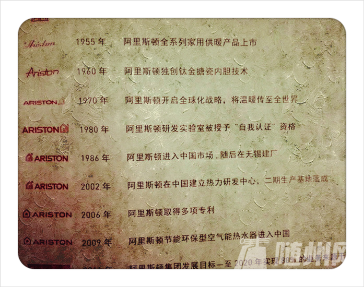 Ariston 1955 年 阿里斯顿全系列家用供暖产品上市
Ariston 1960 年 阿里斯顿独创钛金搪瓷内胆技术
ARISTON 1970 年 阿里斯顿开启全球化战略，将温暖传至全世界
ARISTON 1980 年 阿里斯顿研发实验室被授予“自我认证”资格
ARISTON 1986 年 阿里斯顿进入中国市场，随后在无锡建厂
ARISTON 2002 年 阿里斯顿在中国建立热力研发中心，二期生产基地落成
ARISTON 2006 年 阿里斯顿取得多项专利
ARISTON 2009 年 阿里斯顿节能环保型空气能热水器进入中国
阿里斯顿集团发展目标—至2020年实现
随州网